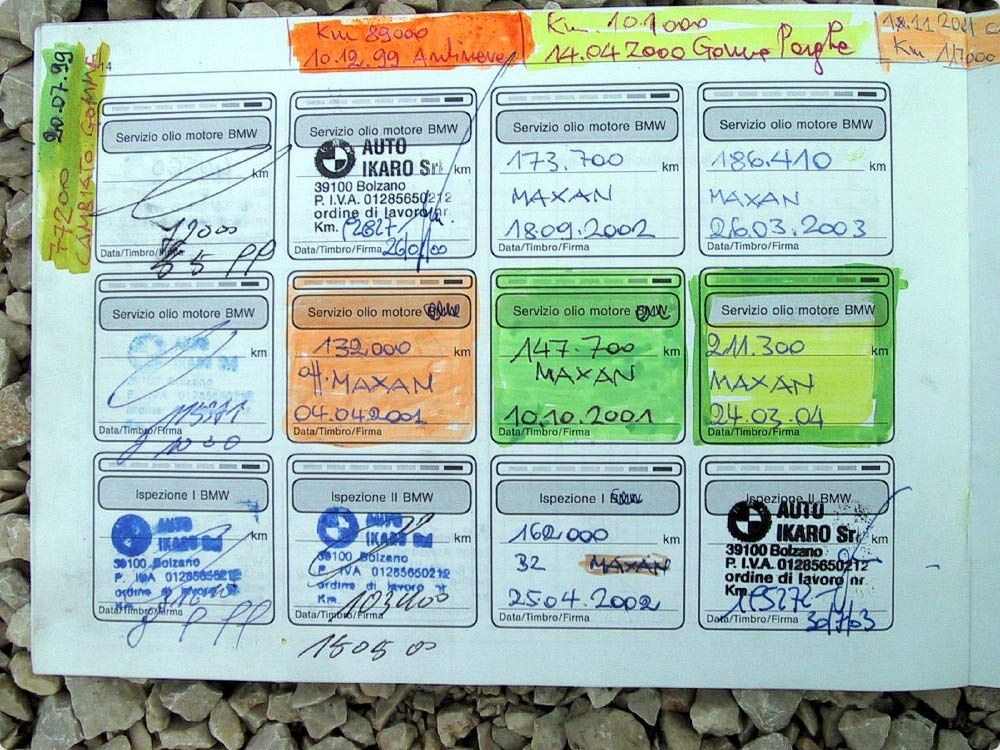 Km 89000
10.12.99 Antineve
Km. 101000
14.04 2000 Gomme
18.11 2001
Km 117000
20.07.99
77200
CAMBIATO GOMME
14
Servizio olio motore BMW
km
Data/Timbro/Firma
Servizio olio motore BMW
AUTO
IKARO Srl
km
39100 Bolzano
P. I.V.A. 01285650212
ordine di lavoro nr.
Km.
Servizio olio motore BMW
173.700
km
MAXAN
18.09.2002
Data/Timbro/Firma
Servizio olio motore BMW
186.410
km
MAXAN
26.03.2003
Data/Timbro/Firma
Servizio olio motore BMW
AUTO
km
Data/Timbro/Firma
Servizio olio motore BMW
132000
km
MAXAN
04.04.2001
Data/Timbro/Firma
Servizio olio motore BMW
147.700
km
MAXAN
10.10.2001
Data/Timbro/Firma
Servizio olio motore BMW
211.300
km
MAXAN
24.03.04
Data/Timbro/Firma
Ispezione I BMW
AUTO
IKARO Srl
km
39100 Bolzano
P. IVA 01285650212
ordine di lavoro nr
Km.
Data/Timbro/Firma
Ispezione II BMW
AUTO
IKARO Srl
km
39100 Bolzano
P. I.V.A. 01285650212
ordine di lavoro nr
Km.
Data/Timbro/Firma
150500
Ispezione I BMW
162000
km
B2 MAXAN
25.04.2002
Data/Timbro/Firma
Ispezione II BMW
AUTO
IKARO Srl
km
39100 Bolzano
P. I.V.A. 01285650212
ordine di lavoro nr
Km.
Data/Timbro/Firma
30/7/03